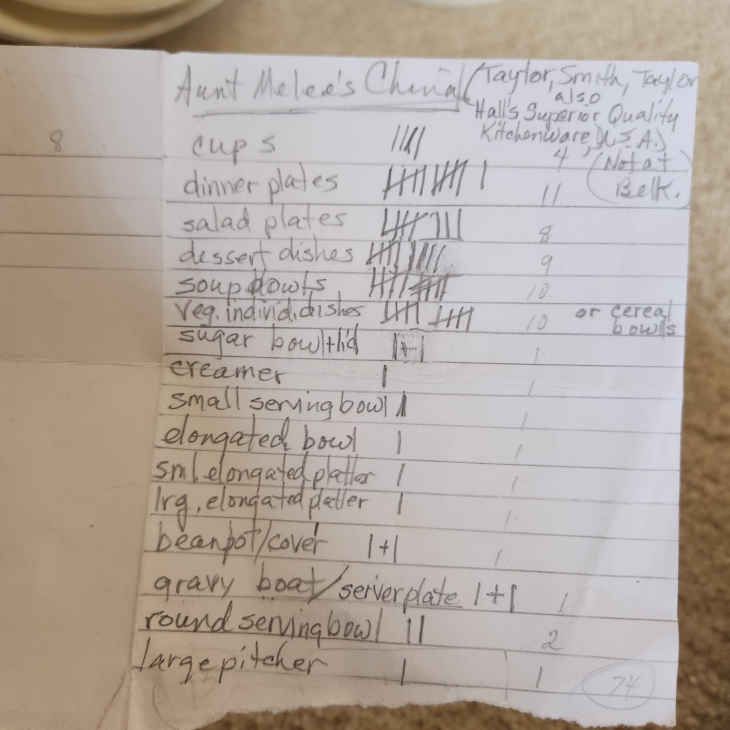 Aunt Melee's China (Taylor, Smith, Taylor
also
Hall's Superior Quality
Kitchenware, U.S.A.)
8
cups |||| 4 (Not at
Belk.
dinner plates 11
salad plates 8
dessert dishes 9
soup bowls 10
veg. individ. dishes 10 or cereal
bowls
sugar bowl + lid 1+1 1
creamer 1 1
small serving bowl 1 1
elongated bowl 1 1
sml. elongated platter 1 1
lrg. elongated platter 1 1
bean pot/cover 1+1 1
gravy boat/server plate 1+1 1
round serving bowl || 2
large pitcher 1 1 74